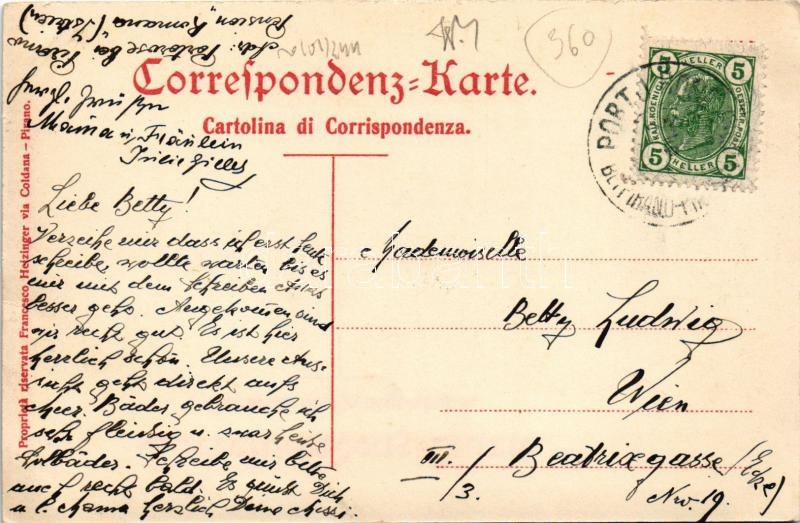 Adr: Portorose bei Pirano
Pension "Romana" (Istrien)
360
Correspondenz=Karte.
Cartolina di Corrispondenza.
Mama u. Fräulein
Liebe Betty!
Verzeihe mir dass ich erst heute
schreibe, wollte warten bis es
mir mit dem Schreiben
besser geht. Angekommen sind
wir recht gut. Es ist hier
herrlich schön. Unsere Aus-
sicht geht direkt aufs
Meer. Bäder gebrauche ich
sehr fleissig u. zwar heisse
Solbäder. Schreibe mir bitte
auch recht bald. Es grüsst Dich
u. l. Mama herzlich Deine
Mademoiselle
Betty Ludwig
Wien
III./3. Beatrixgasse (Ecke)
Nro. 19.
5 HELLER 5
5 HELLER 5
PORT
Proprietà riservata Francesco Hetzinger via Coldana - Pirano.
darabanth